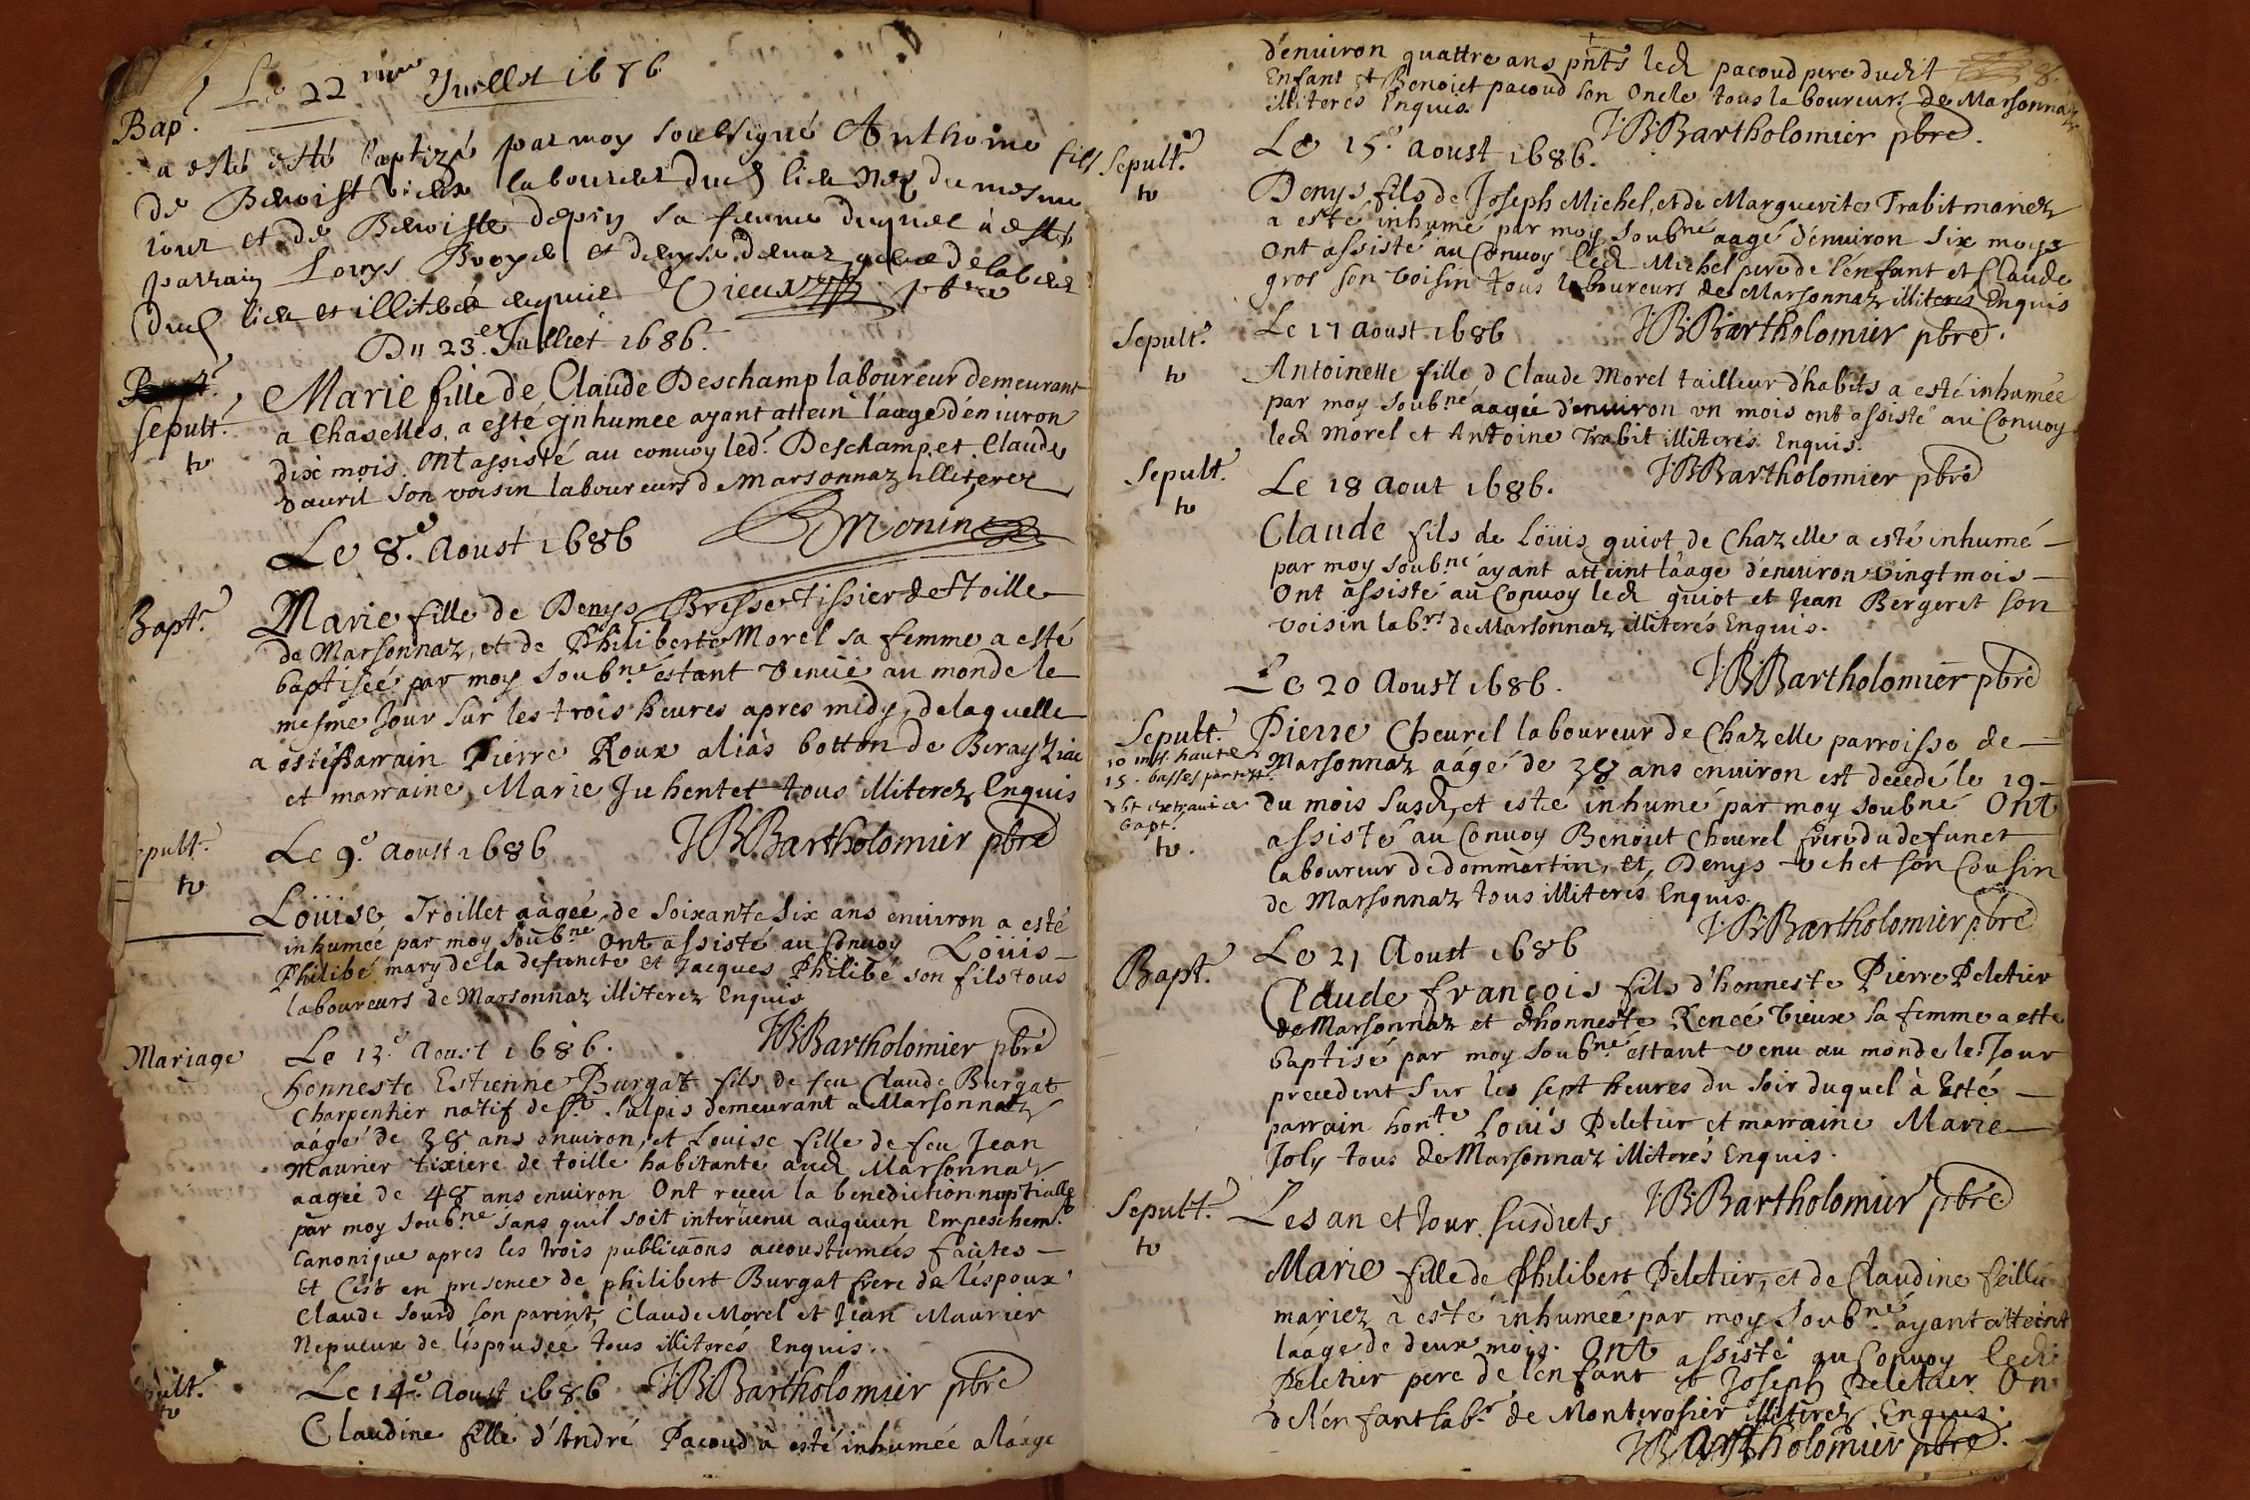 Le 22 me Juellet 1686
Bap.
a esté esté baptizé par moy soubsigné Anthoine fils
de Benoist Vieux laboureur dud lieu nez du mesme
iour et de Benoiste depin sa femme duquel à esté
parrain Louys Booyer et denyse
dud lieu et illiteré enquis Vieux pbre
Du 23.e Julliet 1686.
Sepult.
tv
Marie fille de Claude Deschamp laboureur demeurant
a Chaselles, a esté inhumee ayant attein l'aage d'éniuron
dix mois. Ont assisté au conuoy led.t Deschamp, et Claude
dauril son voisin laboureurs de Marsonnaz illiterez
Monin
Le 8.e Aoust 1686
Bapt.e
Marie fille de Denys Bresse tissier de toille
de Marsonnaz, et de Philiberte Morel sa femme a esté
baptisée par moy soub.né éstant venüe au monde le
mesme Jour sur les trois heures apres midy, de laquelle
a esté parrain Pierre Roux aliàs botton de Berayziat
et marraine, Marie Juhentet tous illiterez Enquis
JBBartholomier pbre
Le 9.e Aoust 1686
epult.e
tv
Loüise Troillet aàgeé de soixante six ans enuiron a esté
inhumeé par moy soub.né Ont assisté au Conuoy Loüis
Philibé mary de la defuncte et Jacques Philibé son fils tous
laboureurs de Marsonnaz illiterez Enquis
JBBartholomier pbre
Mariage
Le 13.e Aoust 1686.
honneste Estienne Burgat fils de feu Claude Burgat
Charpentier natif de St Sulpis demeurant a Marsonnaz
aàgé de 38 ans enuiron, et Louise fille de feu Jean
Maurier tixiere de toille habitante aud Marsonnaz
aagée de 48 ans enuiron Ont receu la benediction nuptialle
par moy soub.né sans quil soit interuenu auquun Empeschem.t
Canonique apres les trois publicaons accoustumées faites
Et C'est en presence de philibert Burgat frere de l'éspoux
Claude Sourd son parent, Claude Morel et Jean Maurier
Nepueux de l'éspousée tous illiterés Enquis.
JBBartholomier pbre
pult.e
tv
Le 14.e Aoust 1686
Claudine fille d'André Pacoud à esté inhumée a l'áage
d'enuiron quattre ans pnts led pacoud pere dudit
Enfant et Benoict pacoud son Oncle tous laboureurs de Marsonnaz
illiterés Enquis.
JBBartholomier pbre.
8.
Sepult.e
tv
Le 15.e aoust 1686.
Denys fils de Joseph Michel, et de Marguerite Trabit mariez
a esté inhumé par moy soub.né aagé d'enuiron six moys
Ont assisté au Conuoy led Michel pere de l'énfant et Claude
gros son voisin tous laboureurs de Marsonnaz illiterés Enquis
JBBartholomier pbre.
Sepult.e
tv
Le 17 Aoust 1686
Antoinette fille d Claude Morel tailleur d'habits a esté inhumée
par moy soub.né aagée d'enuiron vn mois ont assisté au Conuoy
led Morel et Antoine Trabit illiterés Enquis.
JBBartholomier pbre
Sepult.
tv
Le 18 Aout 1686.
Claude fils de Loüis guiot de Chazelle a esté inhumé
par moy soub.né ayant atteint l'aage d'enuiron vingt mois
Ont assisté au Conuoy led guiot et Jean Bergeret son
voisin lab.rs de Marsonnaz illiterés Enquis.
JBBartholomier pbre
Le 20 Aoust 1686.
Sepult.e
10 mss. haute
15. basses
bapt.
tv.
Pierre Cheurel laboureur de Chazelle parroisse de
Marsonnaz aágé de 38 ans enuiron est decedé le 19
du mois susd, et esté inhumé par moy soubné Ont
assisté au Conuoy Benout Cheurel frere du defunct
laboureur de dommartin, et, Denys vchet son Cousin
de Marsonnaz tous illiterés Enquis.
JBBartholomier pbre
Bapt.e
Le 21 Aoust 1686
Claude françois fils d'honneste Pierre Peletier
de Marsonnaz et d'honneste Reneé Vieux sa femme a este
baptisé par moy soub.né estant venu au monde le Jour
precedent sur les sept heures du soir duquel à Esté
parrain hon.te Louïs Peletier et marraine Marie
Joly tous de Marsonnaz illiterés Enquis.
JBBartholomier pbre
Sepult.e
tv
Les an et Jour susdicts
Marie fille de Philibert Peletier, et de Claudine feillu
mariez à esté inhumeé par moy soub.né ayant atteint
láage de deux mois. Ont assisté au Conuoy led
Peletier pere de l'énfant et Joseph Peletier On
de l'énfant lab.r de Monterosier illiterez Enquis.
JBBartholomier pbre.